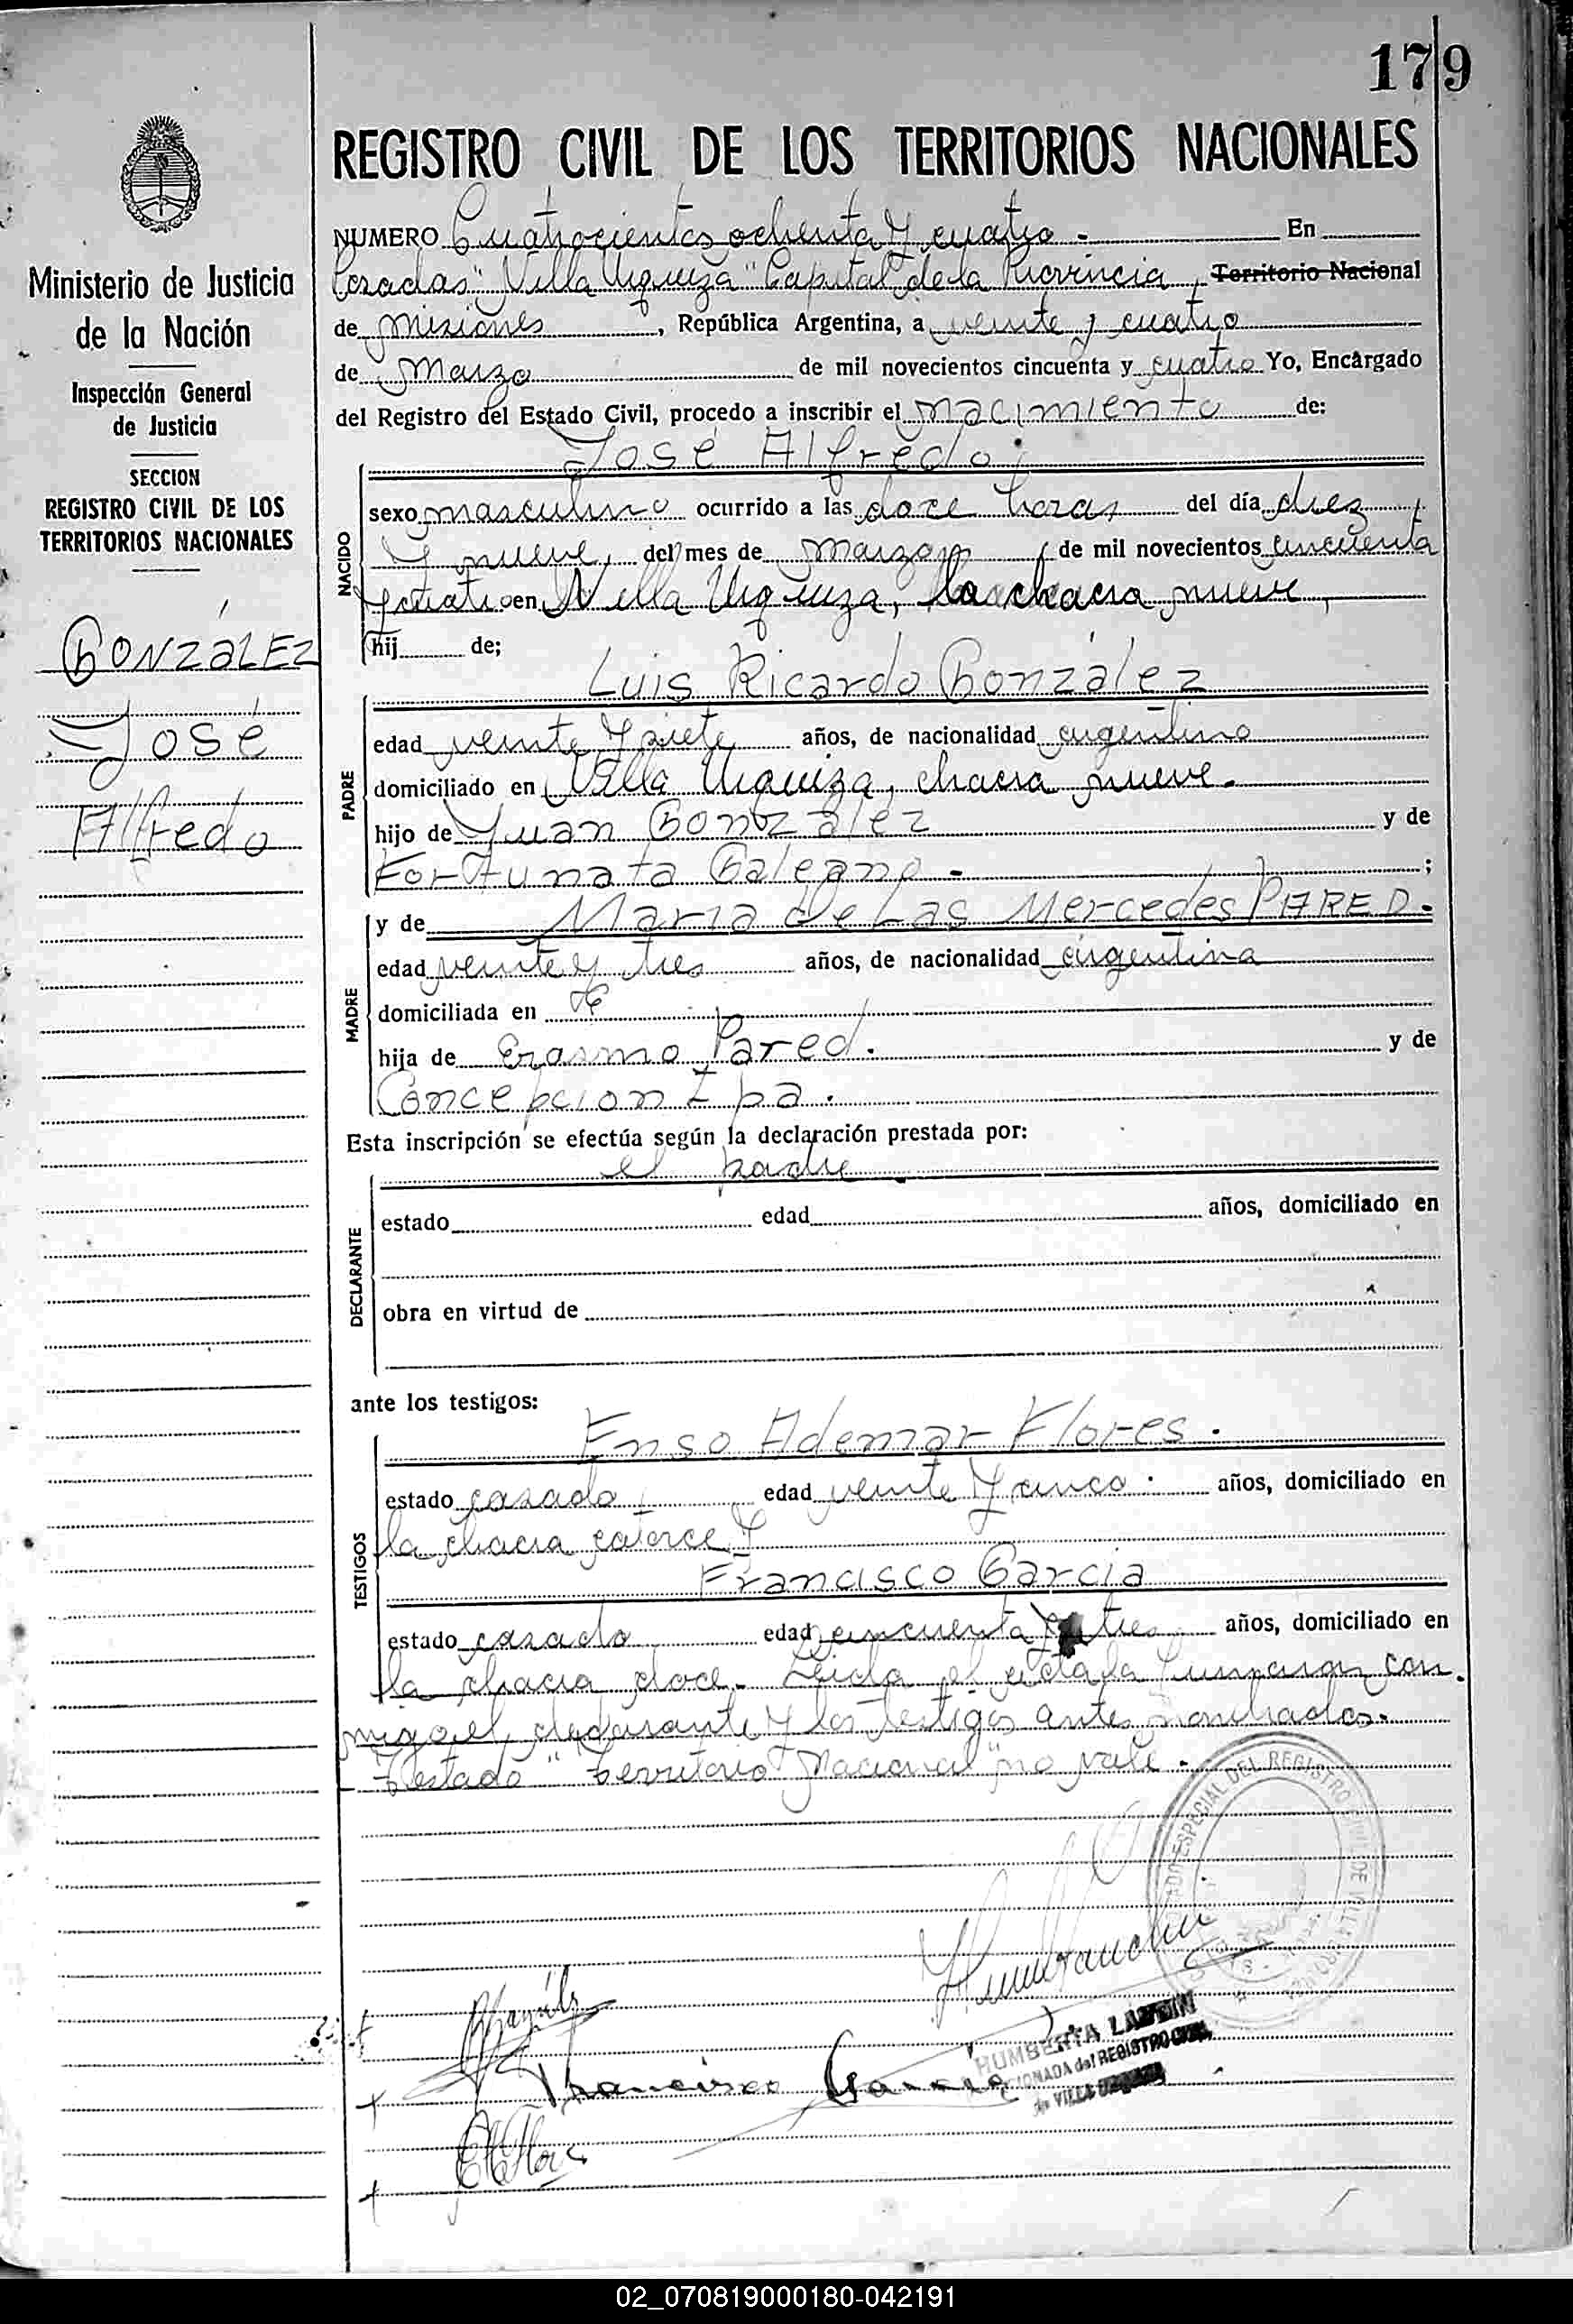 179
REGISTRO CIVIL DE LOS TERRITORIOS NACIONALES
Ministerio de Justicia
de la Nación
Inspección General
de Justicia
SECCION
REGISTRO CIVIL DE LOS
TERRITORIOS NACIONALES
GONZáLEZ
José
Alfredo
NUMERO Cuatrocientos ochenta y cuatro - En
Posadas "Villa Urquiza" Capital de la Provincia, Territorio Nacional
de Misiones, República Argentina, a veinte y cuatro
de Marzo de mil novecientos cincuenta y cuatro Yo, Encargado
del Registro del Estado Civil, procedo a inscribir el Nacimiento de:
José Alfredo;
NACIDO
sexo masculino ocurrido a las doce horas del día diez
y nueve, del mes de Marzo de mil novecientos cincuenta
y cuatro en Villa Urquiza, la chacra nueve,
hij de;
Luis Ricardo González
PADRE
edad veinte y siete años, de nacionalidad argentino
domiciliado en Villa Urquiza, chacra nueve.
hijo de Juan González y de
Fortunata Galeano - ;
y de María de Las Mercedes PARED.
MADRE
edad veinte y tres años, de nacionalidad argentina
domiciliada en
hija de Erasmo Pared. y de
Concepcion
Esta inscripción se efectúa según la declaración prestada por:
el padre
DECLARANTE
estado edad años, domiciliado en
obra en virtud de
ante los testigos:
Enso Ademar Flores.
TESTIGOS
estado casado, edad veinte y cinco. años, domiciliado en
la chacra catorce y
Francisco Garcia
estado casado edad cincuenta y tres años, domiciliado en
la chacra doce. Leida el acta la firmaron con
migo el declarante y los testigos antes nombrados.
- Testado "Territorio Nacional" no vale.
ESPECIAL DEL REGISTRO CIVIL DE VILLA URQUIZA
HUMBERTA
del REGISTRO CIVIL
de VILLA URQUIZA
Francisco Garcia
02_070819000180-042191